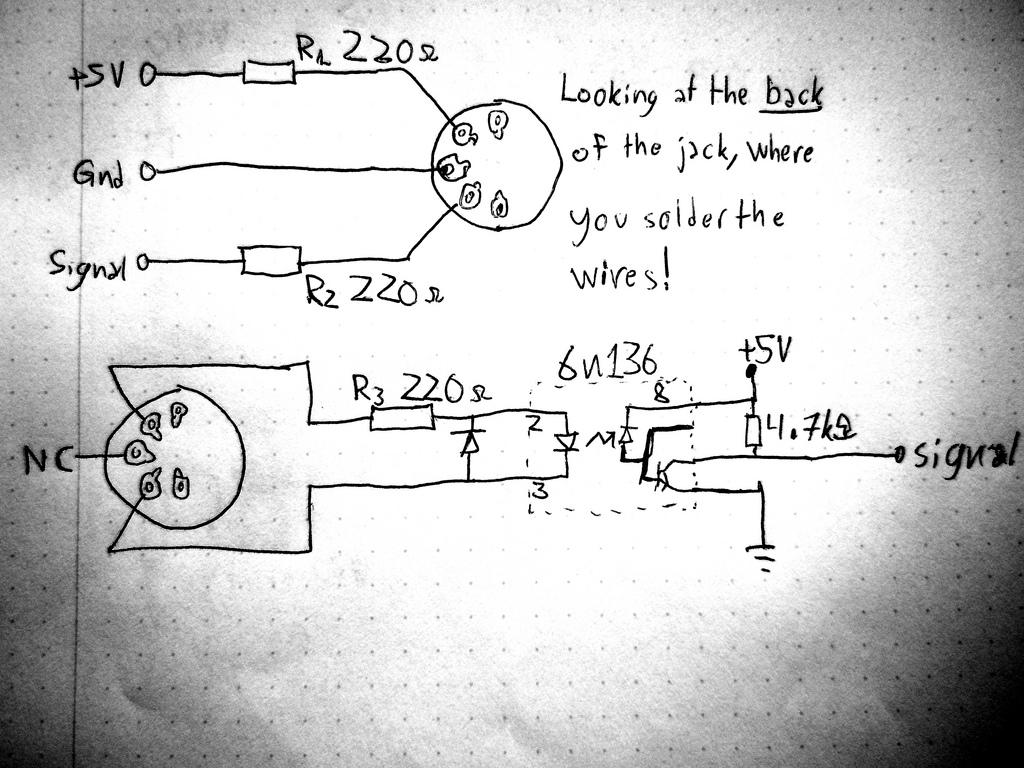 R1 220Ω
+5V
Looking at the back
of the jack, where
Gnd
you solder the
Signal
wires!
R2 220Ω
6n136
+5V
R3 220Ω
8
2
4.7kΩ
NC
signal
3